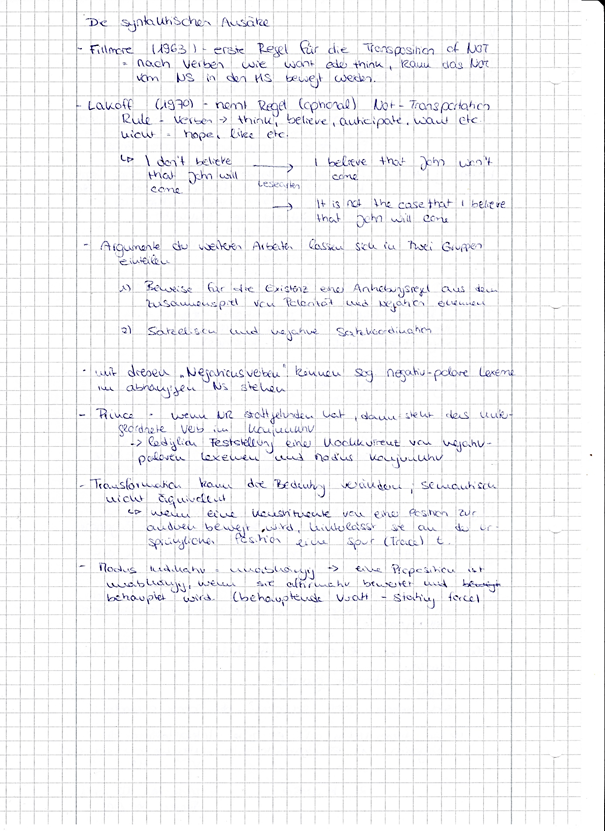 Die syntaktischen Ansätze
- Fillmore (1963) - erste Regel für die Transposition of NOT
= nach Verben wie want oder think, kann das Not
vom NS in den HS bewegt werden.
- Lakoff (1970) - nennt Regel (optional) Not-Transportation
Rule - Verben → think, believe, anticipate, want etc.
nicht - hope, like etc.
↳ I don't believe → I believe that John won't
that John will Lesearten come
come
→ It is not the case that I believe
that John will come
- Argumente der weiteren Arbeiten lassen sich in zwei Gruppen
einteilen
1) Beweise für die Existenz einer Anhebungsregel aus dem
Zusammenspiel von Polarität und Negation
2) und negative Satzkoordination
- mit diesen „Negationsverben" können sog negativ-polare Lexeme
im abhängigen NS stehen
- Prince - wenn NR stattgefunden hat, dann steht das unter-
geordnete Verb im Konjunktiv
-> lediglich Feststellung einer Kookkurrenz von negativ-
polaren Lexemen und Modus Konjunktiv
- Transformation kann die Bedeutung verändern; semantisch
nicht äquivalent
↳ wenn eine Konstituente von einer Position zur
anderen bewegt wird, hinterlässt sie an der ur-
sprünglichen Position eine Spur (Trace) t.
- Modus Indikativ = unabhängig → eine Proposition ist
unabhängig, wenn sie affirmativ bewertet und bewegt
behauptet wird. (behauptende Kraft - stating force)